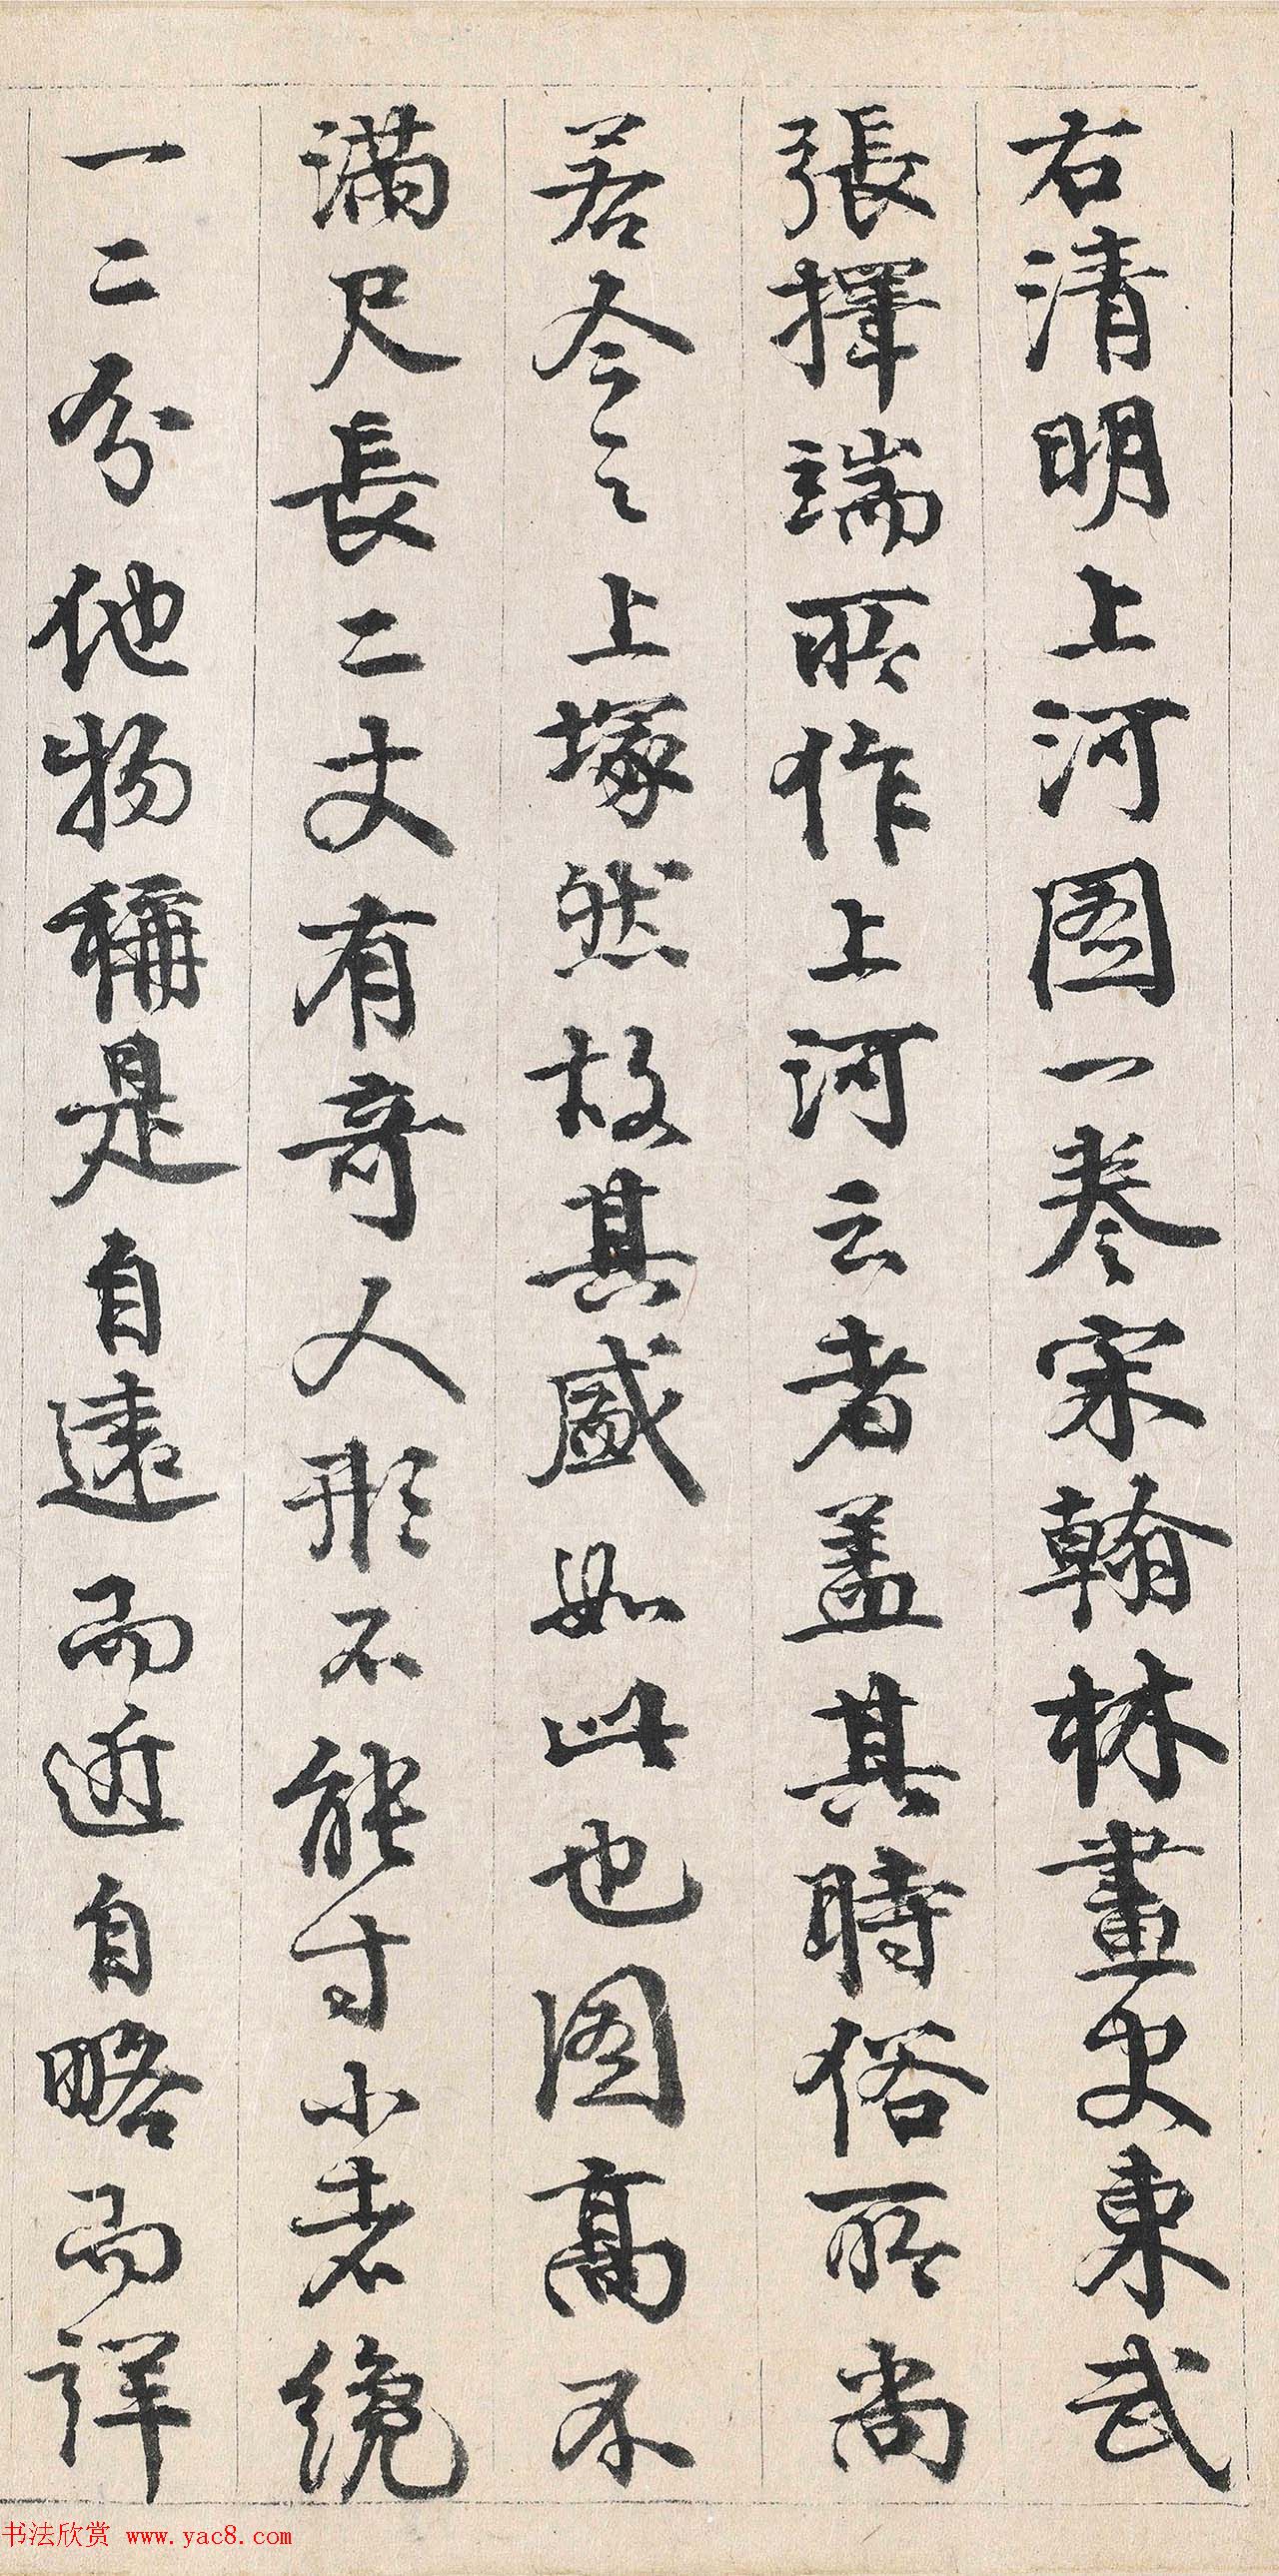 右清明上河圖一卷宋翰林畫史東武
張擇端所作上河云者蓋其時俗所尚
若今之上塚然故其盛如此也圖高不
滿尺長二丈有奇人形不能寸小者纔
一二分他物稱是自遠而近自略而詳
书法欣赏 www.yac8.com